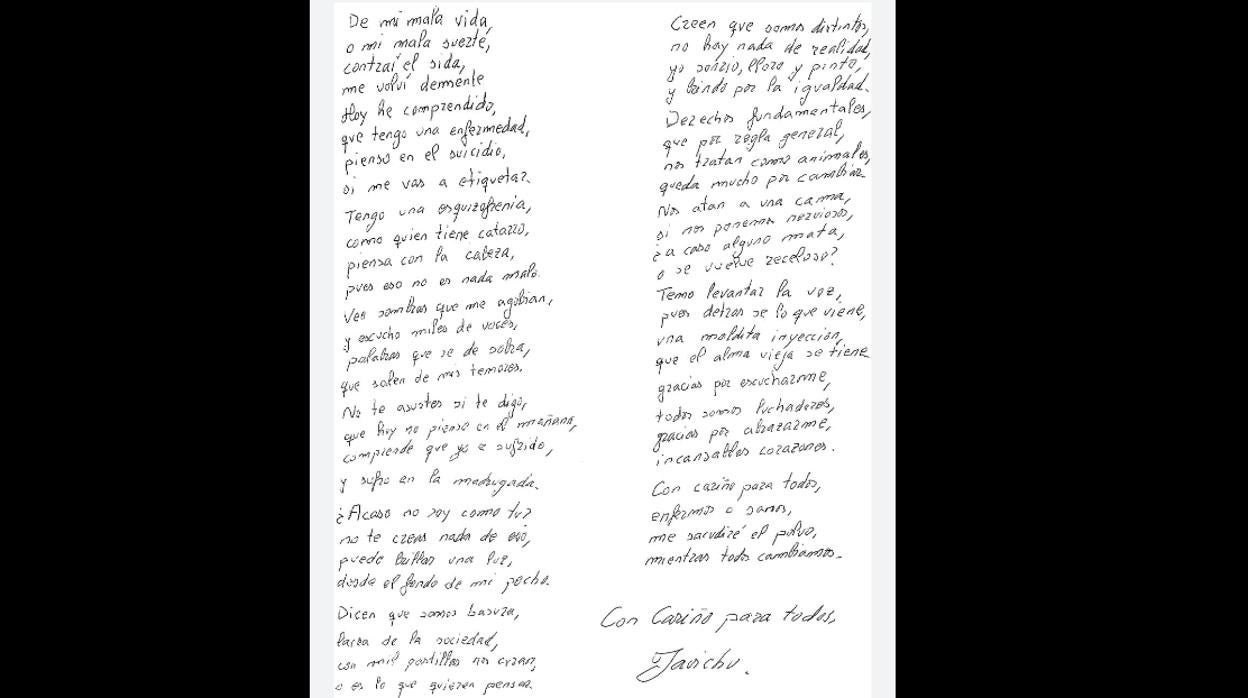 De mi mala vida,
o mi mala suerte,
contraí el sida,
me volví demente
Hoy he comprendido,
que tengo una enfermedad,
pienso en el suicidio,
si me vas a etiquetar.
Tengo una esquizofrenia,
como quien tiene catarro,
piensa con la cabeza,
pues eso no es nada malo.
Veo sombras que me agobian,
y escucho miles de voces,
palabras que se de sobra,
que salen de mis temores.
No te asustes si te digo,
que hoy no pienso en el mañana,
comprende que yo e sufrido,
y sufro en la madrugada.
¿Acaso no soy como tu?
no te creas nada de eso,
puede brillar una luz,
desde el fondo de mi pecho.
Dicen que somos basura,
lacra de la sociedad,
con mil pastillas nos curan,
o es lo que quieren pensar.
Creen que somos distintos,
no hay nada de realidad,
yo sonrio, lloro y pinto,
y brindo por la igualdad.
Derechos fundamentales,
que por regla general,
nos tratan como animales,
queda mucho por cambiar.
Nos atan a una cama,
si nos ponemos nerviosos,
¿a caso alguno mata,
o se vuelve receloso?
Temo levantar la voz,
pues detras se lo que viene,
una maldita inyección,
que el alma vieja se tiene
gracias por escucharme,
todos somos luchadores,
gracias por abrazarme,
incansables corazones.
Con cariño para todos,
enfermos o sanos,
me sacudiré el polvo,
mientras todos cambiamos.
Con Cariño para todos,
Javichu.